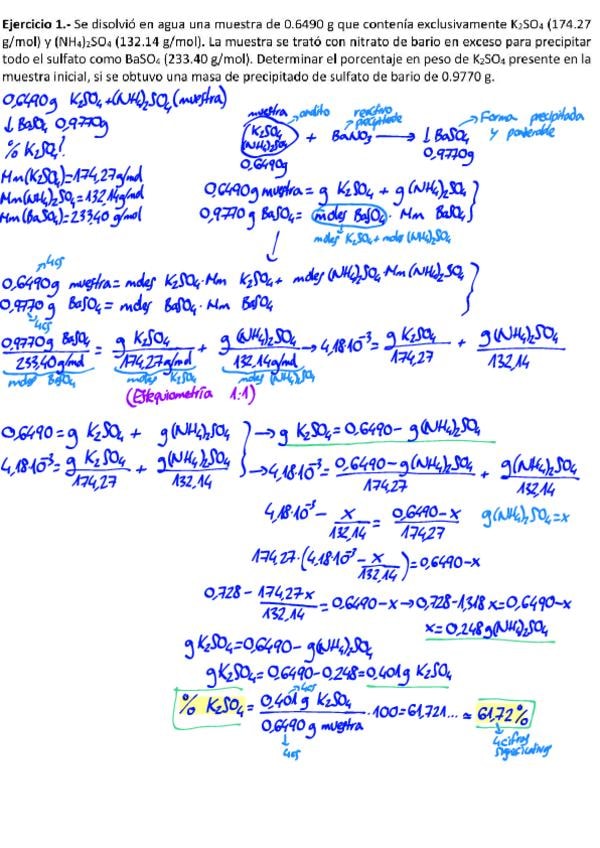 Ejercicio 1.- Se disolvió en agua una muestra de 0.6490 g que contenía exclusivamente K₂SO₄ (174.27
g/mol) y (NH₄)₂SO₄ (132.14 g/mol). La muestra se trató con nitrato de bario en exceso para precipitar
todo el sulfato como BaSO₄ (233.40 g/mol). Determinar el porcentaje en peso de K₂SO₄ presente en la
muestra inicial, si se obtuvo una masa de precipitado de sulfato de bario de 0.9770 g.
0,6490g K₂SO₄+(NH₄)₂SO₄ (muestra)
↓ BaSO₄ 0,9770g
% K₂SO₄?
Mm(K₂SO₄)=174,27g/mol
Mm(NH₄)₂SO₄=132,14g/mol
Mm(BaSO₄)=233,40 g/mol
muestra → analito reactivo precipitante → Forma precipitada y ponderable
K₂SO₄ (NH₄)₂SO₄ + BaNO₃ → ↓BaSO₄
0,6490g 0,9770g
0,6490g muestra = g K₂SO₄ + g (NH₄)₂SO₄
0,9770 g BaSO₄ = moles BaSO₄ · Mm BaSO₄
moles K₂SO₄ + moles (NH₄)₂SO₄
4cs
0,6490g muestra = moles K₂SO₄·Mm K₂SO₄ + moles (NH₄)₂SO₄·Mm (NH₄)₂SO₄
0,9770 g BaSO₄ = moles BaSO₄·Mm BaSO₄
4cs
0,9770g BaSO₄ / 233,40g/mol = g K₂SO₄ / 174,27g/mol + g (NH₄)₂SO₄ / 132,14g/mol → 4,18·10⁻³ = g K₂SO₄ / 174,27 + g(NH₄)₂SO₄ / 132,14
moles BaSO₄ moles K₂SO₄ moles (NH₄)₂SO₄
(Estequiometría 1:1)
0,6490 = g K₂SO₄ + g(NH₄)₂SO₄ → g K₂SO₄ = 0,6490 - g(NH₄)₂SO₄
4,18·10⁻³ = g K₂SO₄ / 174,27 + g(NH₄)₂SO₄ / 132,14 → 4,18·10⁻³ = 0,6490 - g(NH₄)₂SO₄ / 174,27 + g(NH₄)₂SO₄ / 132,14
4,18·10⁻³ - x / 132,14 = 0,6490 - x / 174,27 g(NH₄)₂SO₄ = x
174,27·(4,18·10⁻³ - x / 132,14) = 0,6490 - x
0,728 - 174,27x / 132,14 = 0,6490 - x → 0,728 - 1,318x = 0,6490 - x
x = 0,248g(NH₄)₂SO₄
g K₂SO₄ = 0,6490 - g(NH₄)₂SO₄
g K₂SO₄ = 0,6490 - 0,248 = 0,401g K₂SO₄
4cs
% K₂SO₄ = 0,401 g K₂SO₄ / 0,6490 g muestra · 100 = 61,721... ≃ 61,72%
4cs
4 cifras significativas